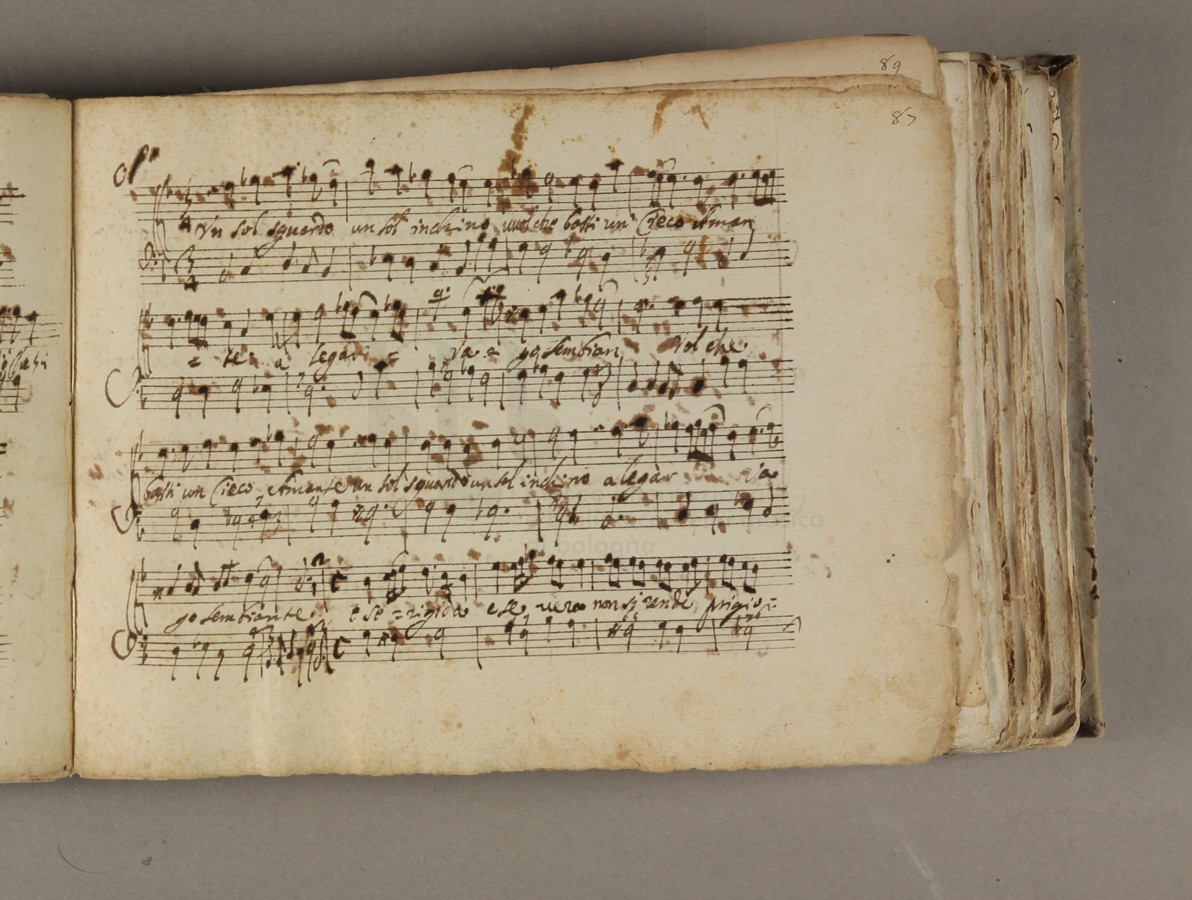 89
87
Un sol sguardo un sol inchino vuol che basti un Cieco Aman
= te a legar = Va = go sembian Vol che
basti un Cieco Amante un sol sguardo un sol inchino a legar Va
go sembiante e se = rigida e se vera non si rende prigio =
bologna